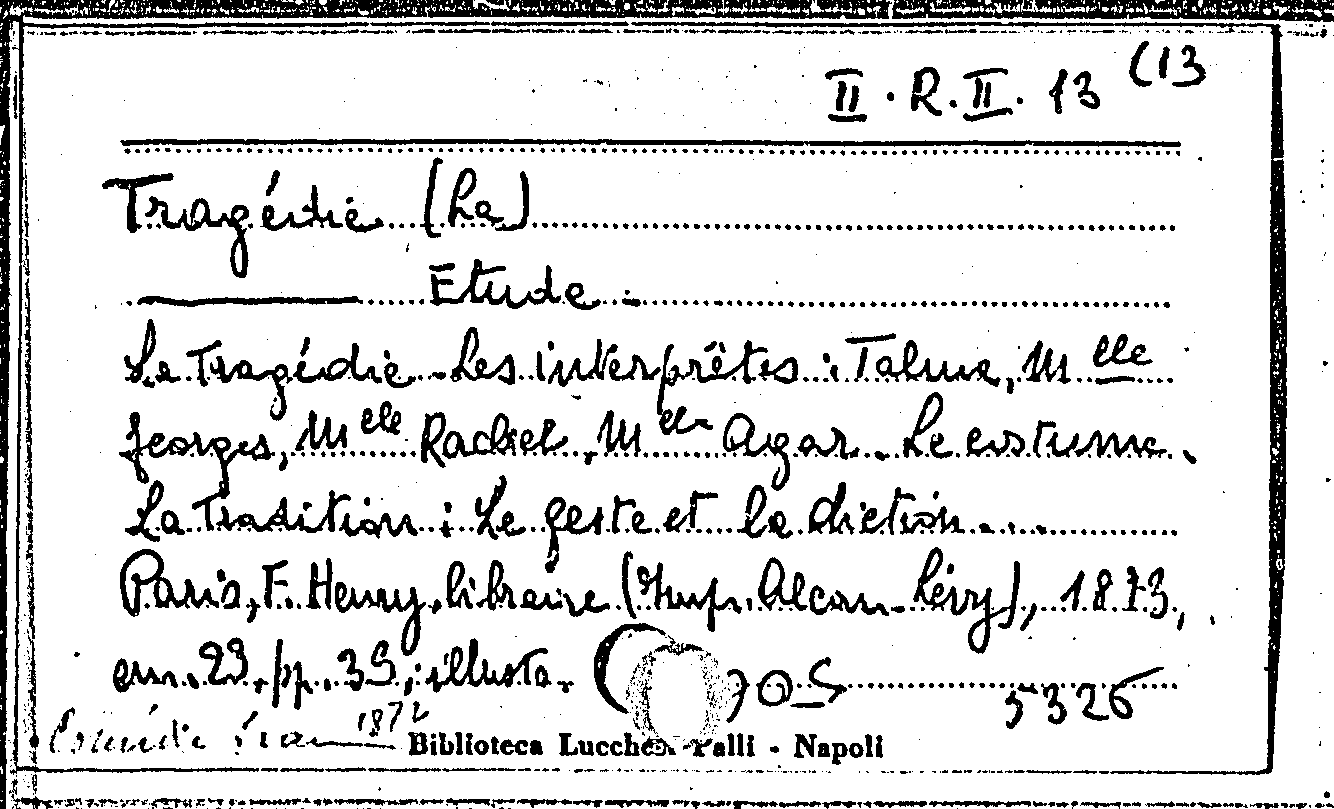 II. R. II. 13 (13
Tragédie (La)
Etude.
La Tragédie - Les interprêtes : Talma, Mlle
Georges, Mlle Rachel, Mlle Agar. Le costume.
La Tradition : Le geste et la diction....
Paris, F. Henry, libraire (Imp. Alcan-Lévy), 1873,
cm. 23, pp. 35, illustr.
5326
1872
Biblioteca Lucchesi Palli - Napoli